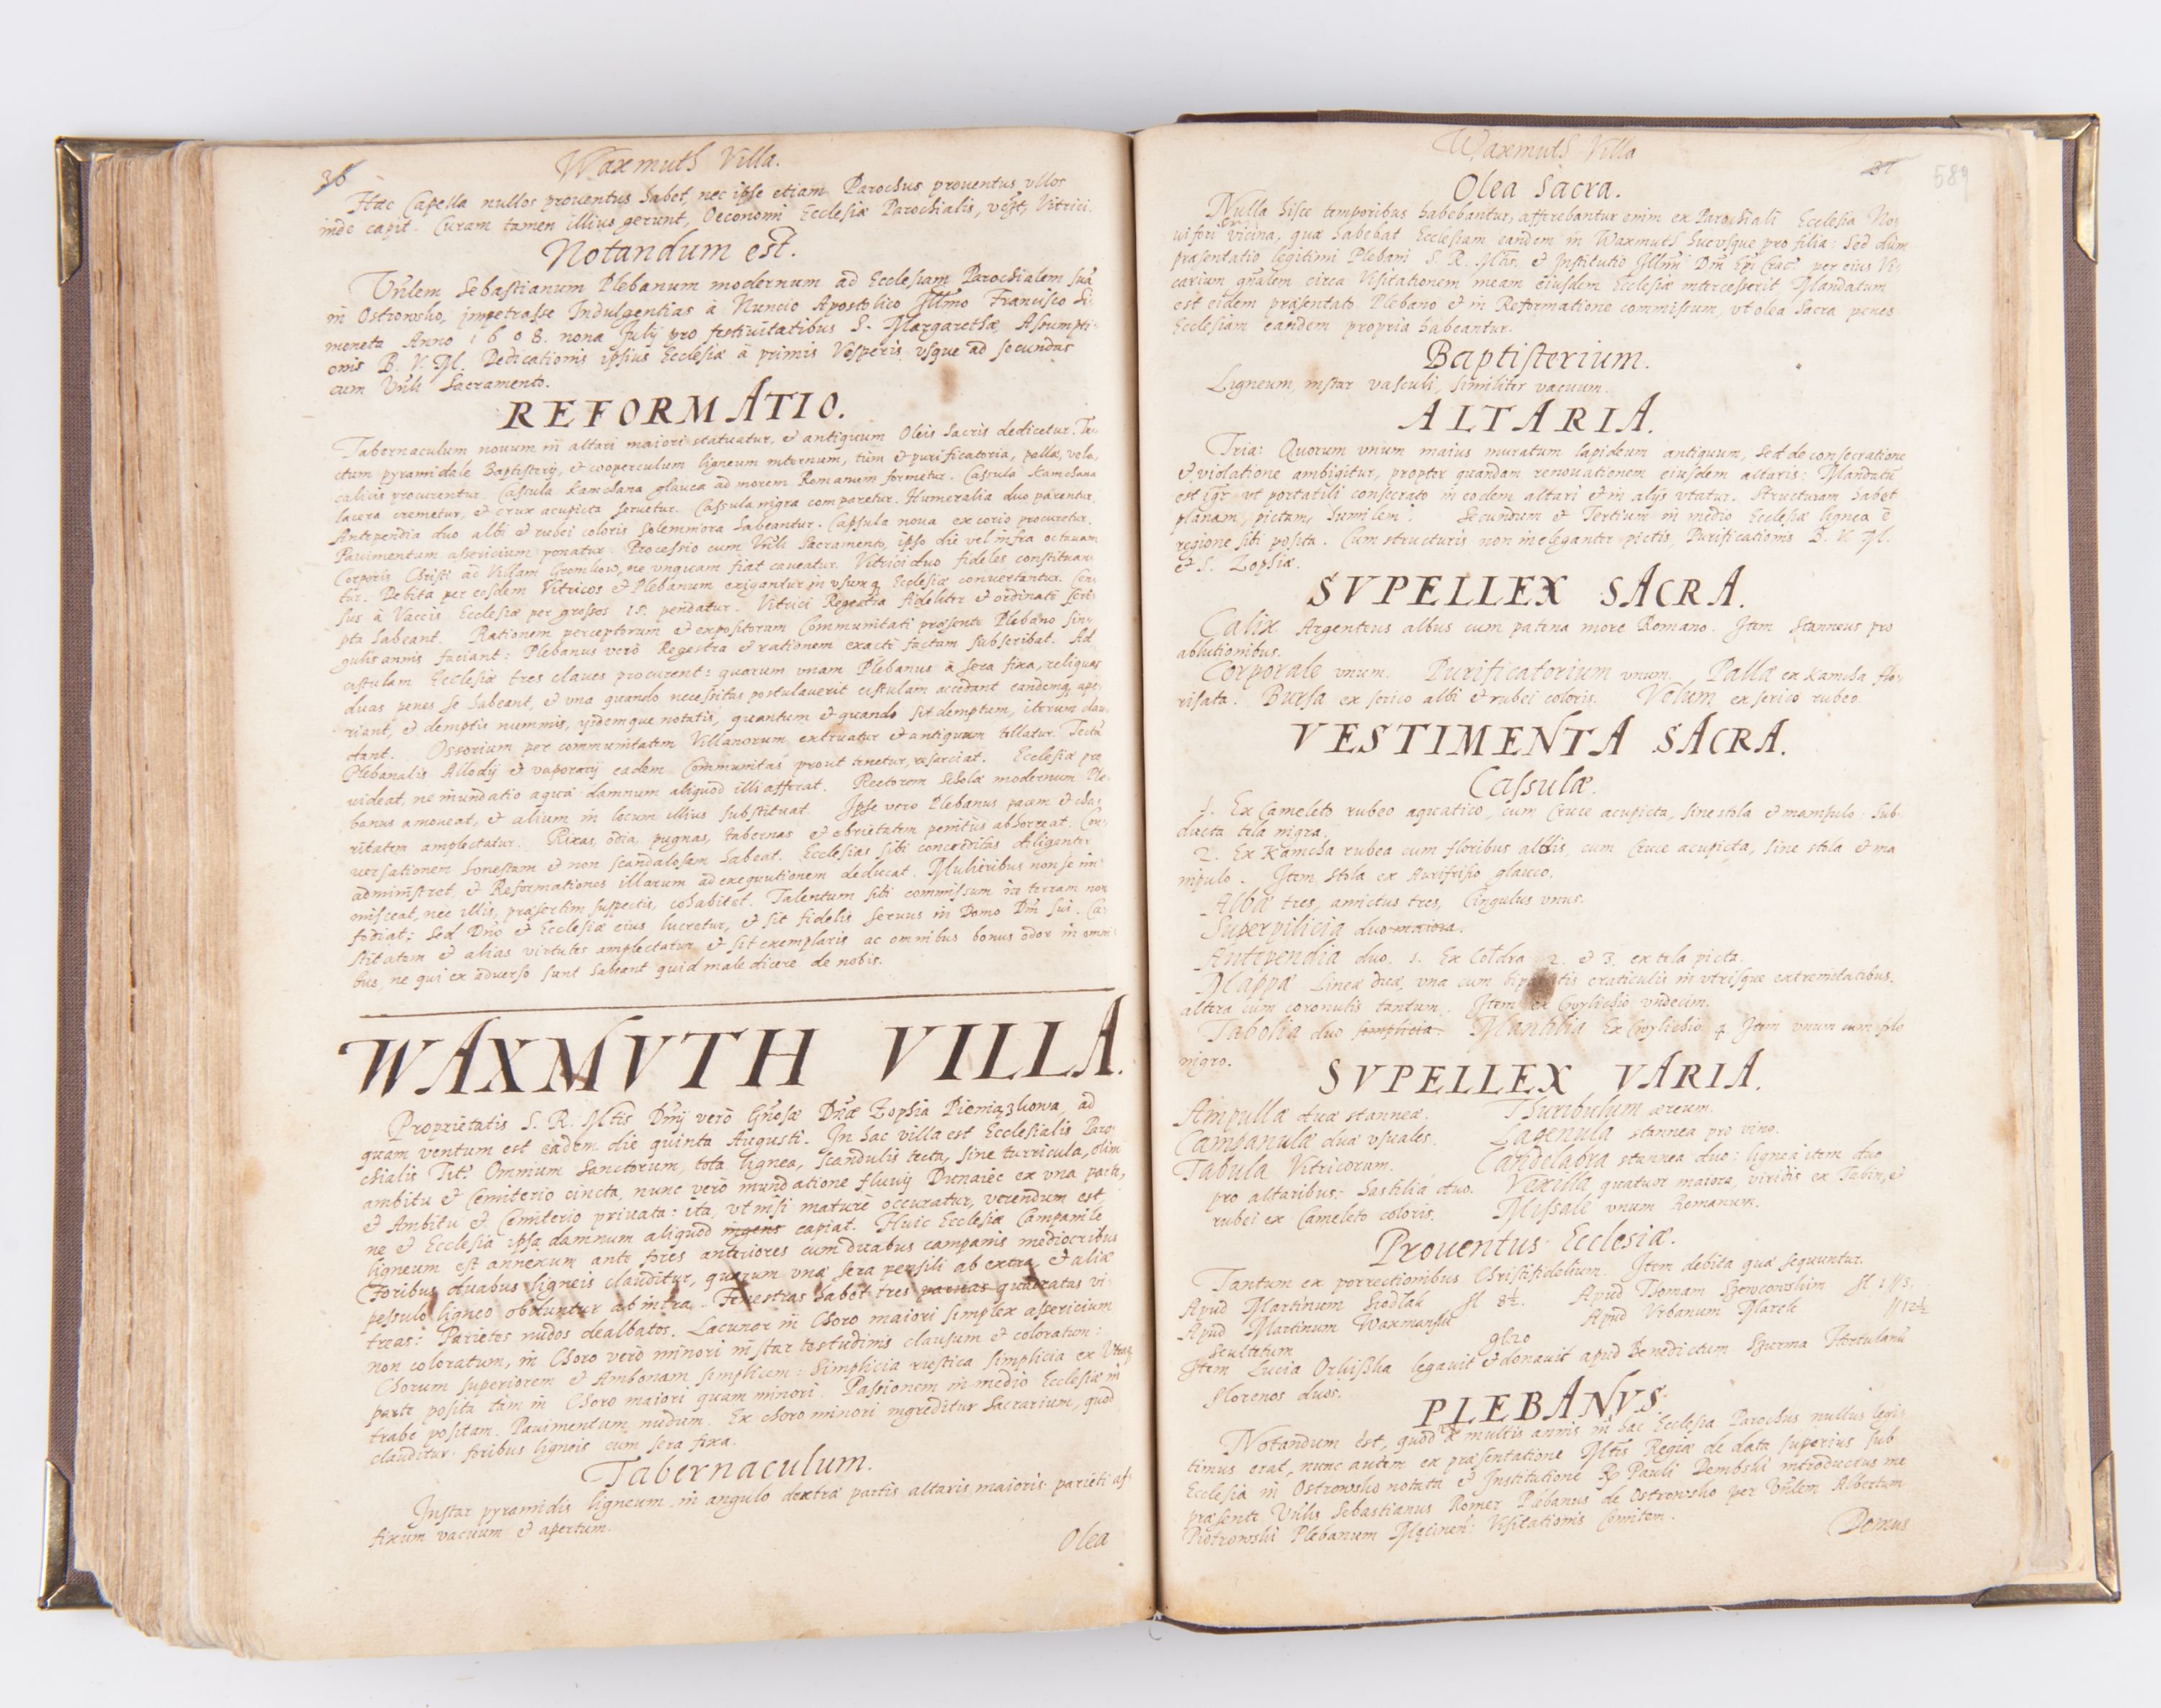 36
Waxmuth Villa.
Hæc Capella nullos prouentus habet, nec ipse etiam Parochus prouentus vllos
inde capit. Curam tamen illius gerunt, Oeconomi Ecclesiæ Parochialis, Vitrici.
Notandum est.
Vñlem Sebastianum Plebanum modernum ad Ecclesiam Parochialem suã
in Ostrowsko, impetrasse Indulgentias à Nuncio Apostolico Illmo Francisco Si-
moneta Anno 1608. nona Julij pro festiuitatibus S. Margarethæ, Assumpti-
onis B. V. M. Dedicationis ipsius Ecclesiæ à primis Vesperis vsque ad secundas
cum Vñli Sacramento.
REFORMATIO.
Tabernaculum nouum in altari maiori statuatur, & antiquum Oleis Sacris dedicetur. Te-
ctum pyramidale Baptisterij, & cooperculum ligneum internum, tùm & purificatoria, pallæ, vela,
calicis procurentur. Casula Kamchana glauca ad morem Romanum formetur. Cassula Kamchana
lacera cremetur, & crux acupicta seruetur. Cassula nigra comparetur. Humeralia duo parentur.
Antependia duo albi & rubei coloris solemniora habeantur. Capsula noua ex corio procuretur.
Pauimentum assericium ponatur. Processio cum Vñli Sacramento, ipso die vel infra octauam
Corporis Christi ad Villam Gronkow, ne vnquam fiat caueatur. Vitrici duo fideles constituan-
tur. Debita per eosdem Vitricos & Plebanum exigantur, in vsumq Ecclesiæ conuertantur. Cen-
sus à Vaccis Ecclesiæ per grossos 15. pendatur. Vitrici Regestra fideliter & ordinatè scri-
pta habeant. Rationem perceptorum & expositorum Communitati præsente Plebano sin-
gulis annis faciant: Plebanus verò Regestra & rationem exactè factam subscribat. Ad
cistulam Ecclesiæ tres claues procurent: quarum vnam Plebanus à sera fixa, reliquas
duas penes se habeant, & vna quando necessitas postulauerit cistulam accedant eandemq ape-
riant, & demptis nummis, ijdemque notatis, quantum & quando sit demptum, iterum clau-
dant. Ossorium per communitatem Villanorum extruatur & antiquum tollatur. Tectũ
Plebanalis Allodij & vaporarij eadem Communitas prout tenetur, resarciat. Ecclesiæ pro-
uideat, ne inundatio aquæ damnum aliquod illi afferat. Rectorem Scholæ modernum Ple-
banus amoueat, & alium in locum illius substituat. Ipse vero Plebanus pacem & cha-
ritatem amplectatur. Rixas, odia, pugnas, tabernas & ebrietatem penitùs abhorreat. Con-
uersationem honestam & non scandalosam habeat. Ecclesias sibi concreditas diligenter
administret, & Reformationes illarum ad exequutionem deducat. Mulieribus non se im-
misceat, nec illis, præsertim suspectis, cohabitet. Talentum sibi commissum in terram non
fodiat; sed Dno & Ecclesiæ eius lucretur, & sit fidelis seruus in Domo Dni sui. Ca-
stitatem & alias virtutes amplectatur & sit exemplaris ac omnibus bonus odor in omni-
bus, ne qui ex aduerso sunt habeant quid male dicere de nobis.
WAXMVTH VILLA.
Proprietatis S. R. Mtis Dñij verò Gñosæ Dñæ Zophiæ Pieniązkowa, ad
quam ventum est eadem die quinta Augusti. In hac villa est Ecclesialis Paro-
chialis Titt Omnium Sanctorum, tota lignea, scandulis tecta, sine turricula, olim
ambitu & Cemiterio cincta, nunc verò inundatione fluuij Dunaiec ex vna parte,
& Ambitu & Cemiterio priuata: ita, vt nisi maturè occuratur, verendum est,
ne & Ecclesia ipsa damnum aliquod ingens capiat. Huic Ecclesiæ Campanile
ligneum est annexum ante fores anteriores cum duabus campanis mediocribus
Foribus duabus ligneis clauditur, quarum vnæ sera pensili ab extra, & aliæ
pessulo ligneo obduntur ab intra. Fenestras habet tres quadratas vi-
treas: Parietes nudos dealbatos. Lacunar in Choro maiori simplex assericium
non coloratum, in Choro verò minori instar testudinis clausum & coloratum:
Chorum superiorem & Ambonam simplicem: Simplicia rustica simplicia ex Vtraq
parte posita tam in Choro maiori quam minori. Passionem in medio Ecclesiæ in
trabe positam. Pauimentum nudum. Ex choro minori ingreditur Sacrarium, quod
clauditur foribus ligneis cum sera fixa.
Tabernaculum.
Instar pyramidis ligneum in angulo dextræ partis altaris maioris parieti af-
fixum vacuum & apertum.
Olea
Waxmuth Villa
37
589
Olea Sacra.
Nulla hisce temporibus habebantur, afferebantur enim ex Parochiali Ecclesia No-
uifori vicina, quæ habebat Ecclesiam eandem in Waxmuth hucvsque pro filia: Sed dũm
præsentatio legitimi Plebani S. R. Mtis. & Institutio Illmi Dni Epi Crac: per eius Vi-
carium gñalem circa Visitationem meam eiusdem Ecclesiæ intercesserit Mandatum
est eidem præsentato Plebano & in Reformatione commissum, vt olea Sacra penes
Ecclesiam eandem propria habeantur.
Baptisterium.
Ligneum, instar vasculi, similiter vacuum.
ALTARIA.
Tria: Quorum vnum maius muratum lapideum antiquum, sed de consecratione
& violatione ambigitur, propter quandam renouationem eiusdem altaris: Mandatũ
est igr vt portatili consecrato in eodem altari & in alijs vtatur. Structuram habet
planam, pictam, humilem. Secundum & Tertium in medio Ecclesiæ lignea è
regione sibi posita. Cum structuris non ineleganter pictis, Purificationis B. V. M.
& S. Zophiæ.
SVPELLEX SACRA.
Calix Argenteus albus cum patena more Romano. Item Stanneus pro
ablutionibus.
Corporale vnum. Purificatorium vnum. Palla ex Kamcha flo-
risata. Bursa ex serico albi & rubei coloris. Velum ex serico rubeo
VESTIMENTA SACRA.
Casulæ.
1. Ex Cameleto rubeo aquatico, cum Cruce acupicta, sine stola & manipulo sub-
ducta tela nigra.
2. Ex Kamcha rubea cum floribus albis, cum Cruce acupicta, sine stola & ma
nipulo. Item stola ex Aurifrisio glauco.
Albæ tres, amictus tres, Cingulus vnus.
Superpilicia duo maiora.
Antependia duo. 1. Ex Coldra 2. & 3. ex tela picta.
Mappæ Lineæ duæ, vna cum craticulis in vtrisque extremitatibus.
altera cum coronulis tantum. Item ex Cwylichio vndecim.
Tabolia duo simplicia. Mantilia Ex Cwylichio 4 Item vnum cum filo
nigro.
SVPELLEX VARIA.
Ampullæ duæ stanneæ. Thuribulum æreum.
Campanulæ duæ vsuales. Lagenula stannea pro vino.
Tabula Vitricorum. Candelabra stannea duo: lignea item duo
pro altaribus: hastilia duo. Vexilla quatuor maiora, viridis ex Tabin, &
rubei ex Cameleto coloris. Missale vnum Romanum.
Prouentus Ecclesiæ.
Tantum ex porrectionibus Christifidelium. Item debita quæ sequuntur.
Apud Martinum Siodlak fl 8½. Apud Thomam Szewcowskim fl 1//3.
Apud Martinum Waxmanski Apud Vrbanum Marek //12½
Scultetum gl.20
Item Lucia Orkiszka legauit & donauit apud Benedictum Szurma Hortulanũ
florenos duos.
PLEBANVS.
Notandum est, quod à multis annis in hac Ecclesia Parochus nullus legi-
timus erat, nunc autem ex præsentatione Mtis Regiæ de data superius sub
Ecclesia in Ostrowsko notata & Institutione R Pauli Dembski introductus me
præsente Vñlis Sebastianus Romer Plebanus de Ostrowsko per Vñlem Albertum
Piotrowski Plebanum Visitationis Comitem.
Domus